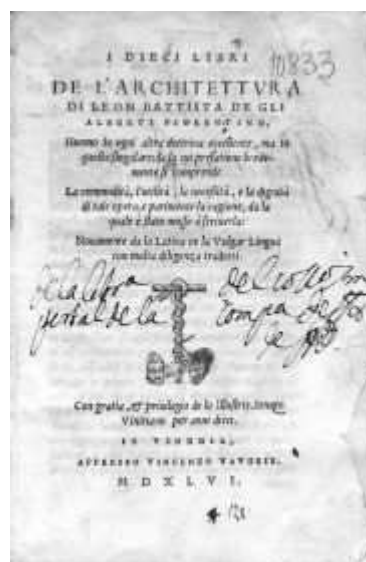 I DIECI LIBRI
10833
DE L'ARCHITETTVRA
DI LEON BATTISTA DE GLI
ALBERTI FIORENTINO,
Huomo in ogni altra dottrina eccellente, ma in
questa singolare; da la cui prefatione
si comprende
La commodità, l'utilità, la necessità, e la dignità
di tale opera, e parimente la cagione, da la
quale è stato mosso à scriverla:
Novamente da la Latina ne la Volgar Lingua
con molta diligenza tradotti.
de la
de la
Con gratia, & privilegio de lo Illustriss. Senato
Vinitiano per anni dieci.
IN VENEGIA,
APPRESSO VINCENZO VAVGRIS.
M D XLVI.